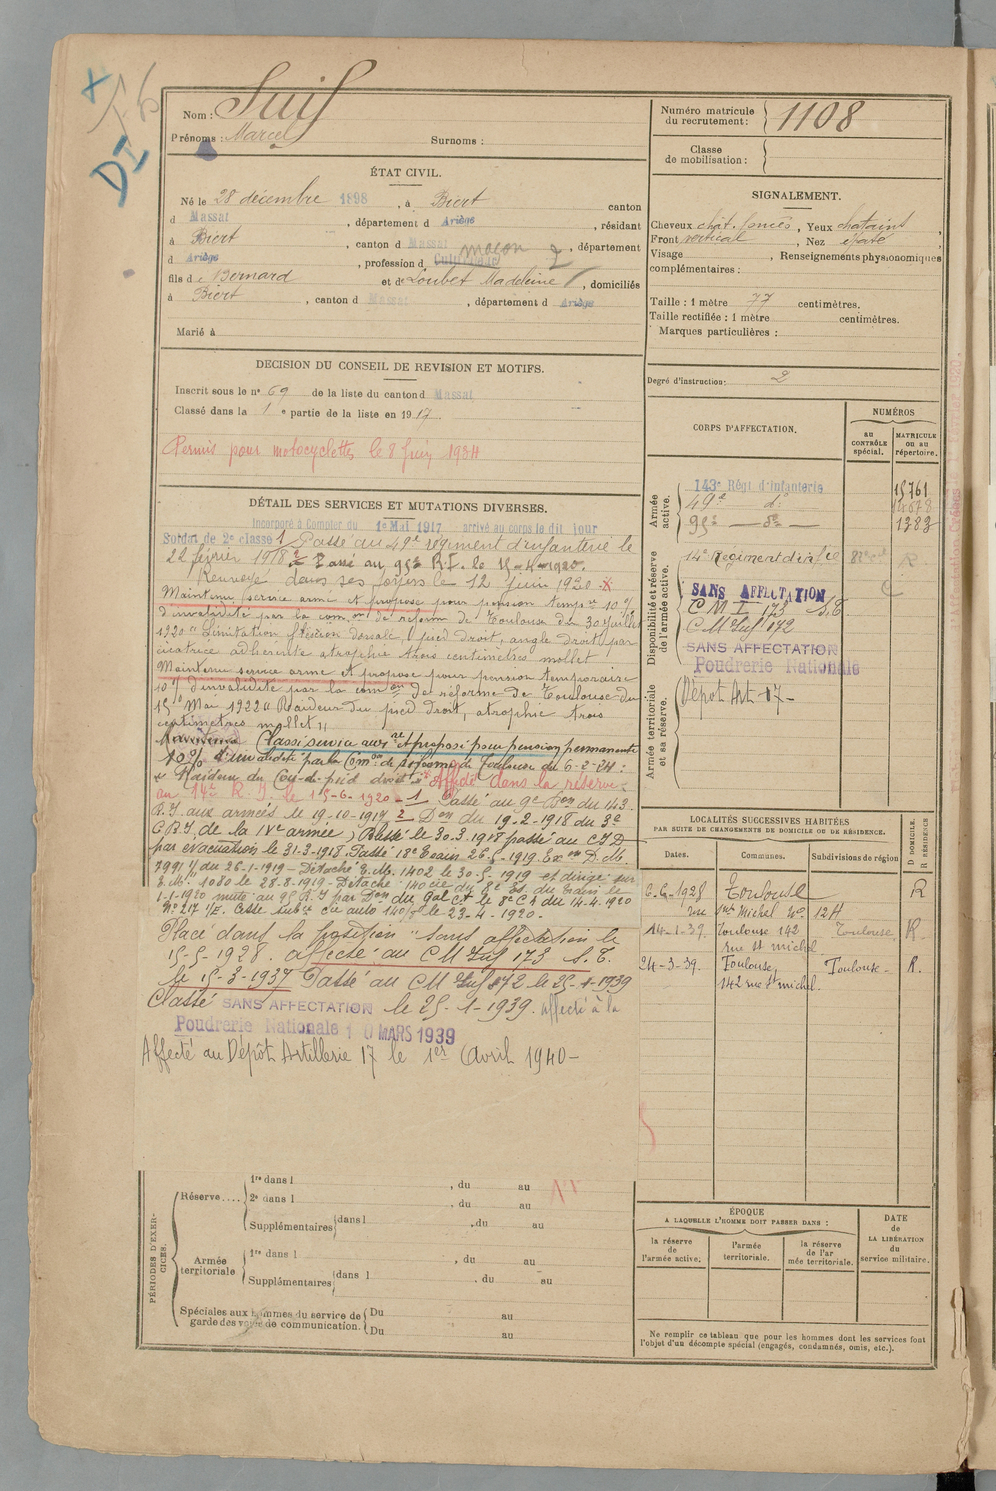 +
16
DI
Nom : Suif
Prénoms : Marcel Surnoms :
Numéro matricule du recrutement : 1108
Classe de mobilisation :
ÉTAT CIVIL.
Né le 28 décembre 1898, à Biert canton
d Massat, département d Ariège, résidant
à Biert, canton d Massat, département
d Ariège, profession d Cultivateur maçon
fils de Bernard et de Loubet Madeleine, domiciliés
à Biert, canton d Massat, département d Ariège
Marié à
SIGNALEMENT.
Cheveux chât. foncés, Yeux chatains
Front vertical, Nez épaté
Visage, Renseignements physionomiques
complémentaires :
Taille : 1 mètre 77 centimètres.
Taille rectifiée : 1 mètre centimètres.
Marques particulières :
Degré d'instruction : 2
DECISION DU CONSEIL DE REVISION ET MOTIFS.
Inscrit sous le n° 69 de la liste du canton d Massat
Classé dans la 1e partie de la liste en 1917
Permis pour motocyclettes le 8 Juin 1934
DÉTAIL DES SERVICES ET MUTATIONS DIVERSES.
Incorporé à Compter du 1er Mai 1917 arrivé au corps le dit jour
Soldat de 2e classe 1 Passé au 49e régiment d'infanterie le
22 février 1918 2 Passé au 95e R.I. le 15-4-1920.
Renvoyé dans ses foyers le 12 Juin 1920 X
Maintenu service armé et proposé pour pension tempre 10%
d'invalidité par la comon de réforme de Toulouse du 30 juillet
1920 "Limitation flexion dorsale, pied droit, angle droit par
cicatrice adhérente atrophie trois centimètres mollet
Maintenu service armé et proposé pour pension temporaire
10% d'invalidité par la comon de réforme de Toulouse du
15 Mai 1922 "Raideur du pied droit, atrophie trois
centimètres mollet"
Classé service auxre et proposé pour pension permanente
10% d'invalidité par la Comon de réforme de Toulouse du 6-2-24 :
"Raideur du Cou-de-pied droit" Affecté dans la réserve
au 14e R.I. le 15-6-1920 - 1 Passé au 9e Bon du 143
R.I aux armées le 19-10-1917 2 Don du 19-2-1918 du 3e
C.B.I. de la IVe armée, Blessé le 30-3-1918 passé au C I D
par évacuation le 31-3-1918. Passé 18e Escain 26-5-1919 Exon D.M.
7991 1/ du 26-1-1919 - Détaché E.M. 1402 le 30-5-1919 et dirigé sur
E.M. 1030 le 28-8-1919 - Détaché 140 cie du 8e Es. du train le
1-1-1920 muté au 95 R.I par Don du Gal Ct le 8e C A du 14-4-1920
No 217 1/E. Cesse subce cie auto 140/5 le 23-4-1920.
Placé dans la position "sans affectation le
15-5-1928. affecté au C M Inf 173 S.E.
le 15-3-1937 Passé au CM Inf 172 le 25-1-1939
Classé SANS AFFECTATION le 25-1-1939. affecté à la
Poudrerie Nationale 10 MARS 1939
Affecté au Dépôt Artillerie 17 le 1er Avril 1940 -
CORPS D'AFFECTATION.
NUMÉROS
au CONTRÔLE spécial.
MATRICULE ou au répertoire.
Armée active.
143e Régt d'Infanterie 15761
49e d° 14678
95e — d° — 1383
Disponibilité et réserve de l'armée active.
14e Régiment d'infie R
SANS AFFECTATION C
C M I 173 S.E
C M Inf 172
SANS AFFECTATION
Poudrerie Nationale
Armée territoriale et sa réserve.
Dépôt Art-17-
LOCALITÉS SUCCESSIVES HABITÉES
PAR SUITE DE CHANGEMENTS DE DOMICILE OU DE RÉSIDENCE.
Dates. Communes. Subdivisions de région D DOMICILE. R RÉSIDENCE
6-6-1928 Toulouse R
rue St Michel No 124
14-1-39. Toulouse 142 Toulouse R.
rue St michel
24-3-39. Toulouse, Toulouse - R.
142 rue St michel.
ÉPOQUE
A LAQUELLE L'HOMME DOIT PASSER DANS :
la réserve de l'armée active.
l'armée territoriale.
la réserve de l'armée territoriale.
DATE de LA LIBÉRATION du service militaire.
Ne remplir ce tableau que pour les hommes dont les services font
l'objet d'un décompte spécial (engagés, condamnés, omis, etc.).
PÉRIODES D'EXERCICES.
Réserve ....
1re dans l , du au
2e dans l , du au
Supplémentaires dans l , du au
Armée territoriale
1re dans l , du au
Supplémentaires dans l , du au
Spéciales aux hommes du service de garde des voies de communication.
Du au
Du au